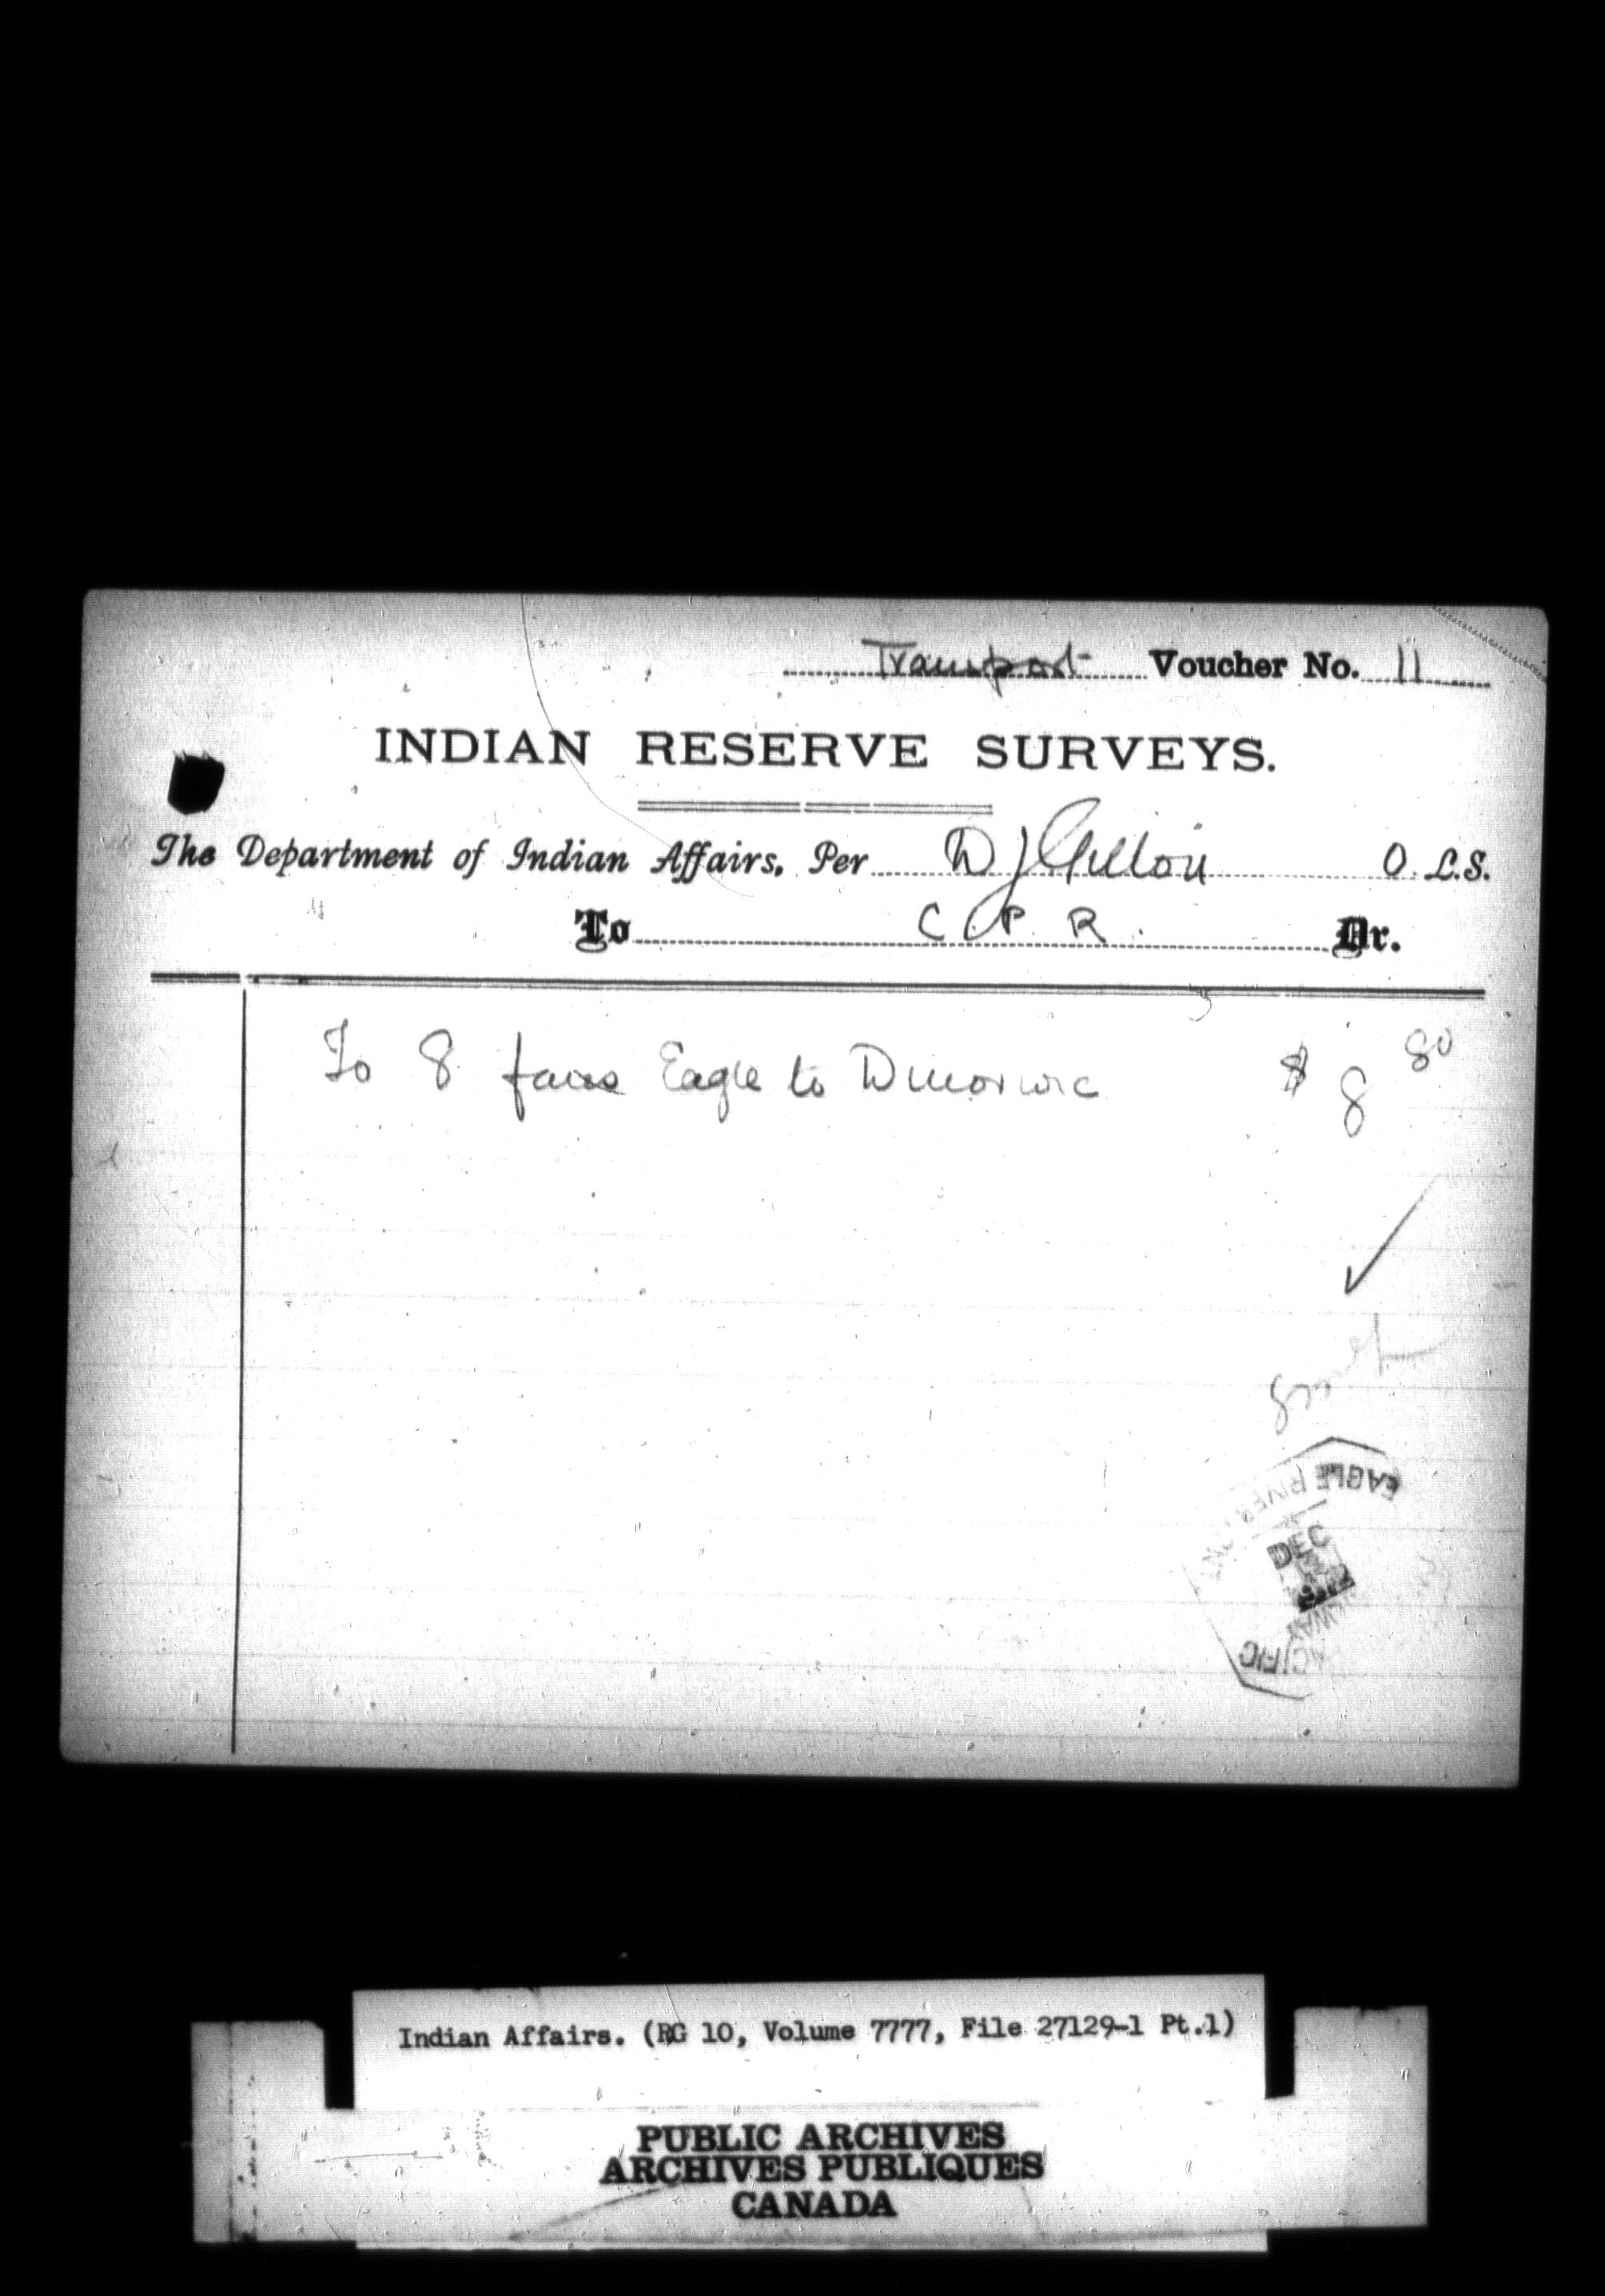 Transport Voucher No. 11
INDIAN RESERVE SURVEYS.
The Department of Indian Affairs, Per D J Gillon O. L.S.
To C. P. R. Dr.
To 8 fares Eagle to Dinorwic $ 8 80
EAGLE RIVER ONT
DEC
PACIFIC
Indian Affairs. (RG 10, Volume 7777, File 27129-1 Pt.1)
PUBLIC ARCHIVES
ARCHIVES PUBLIQUES
CANADA